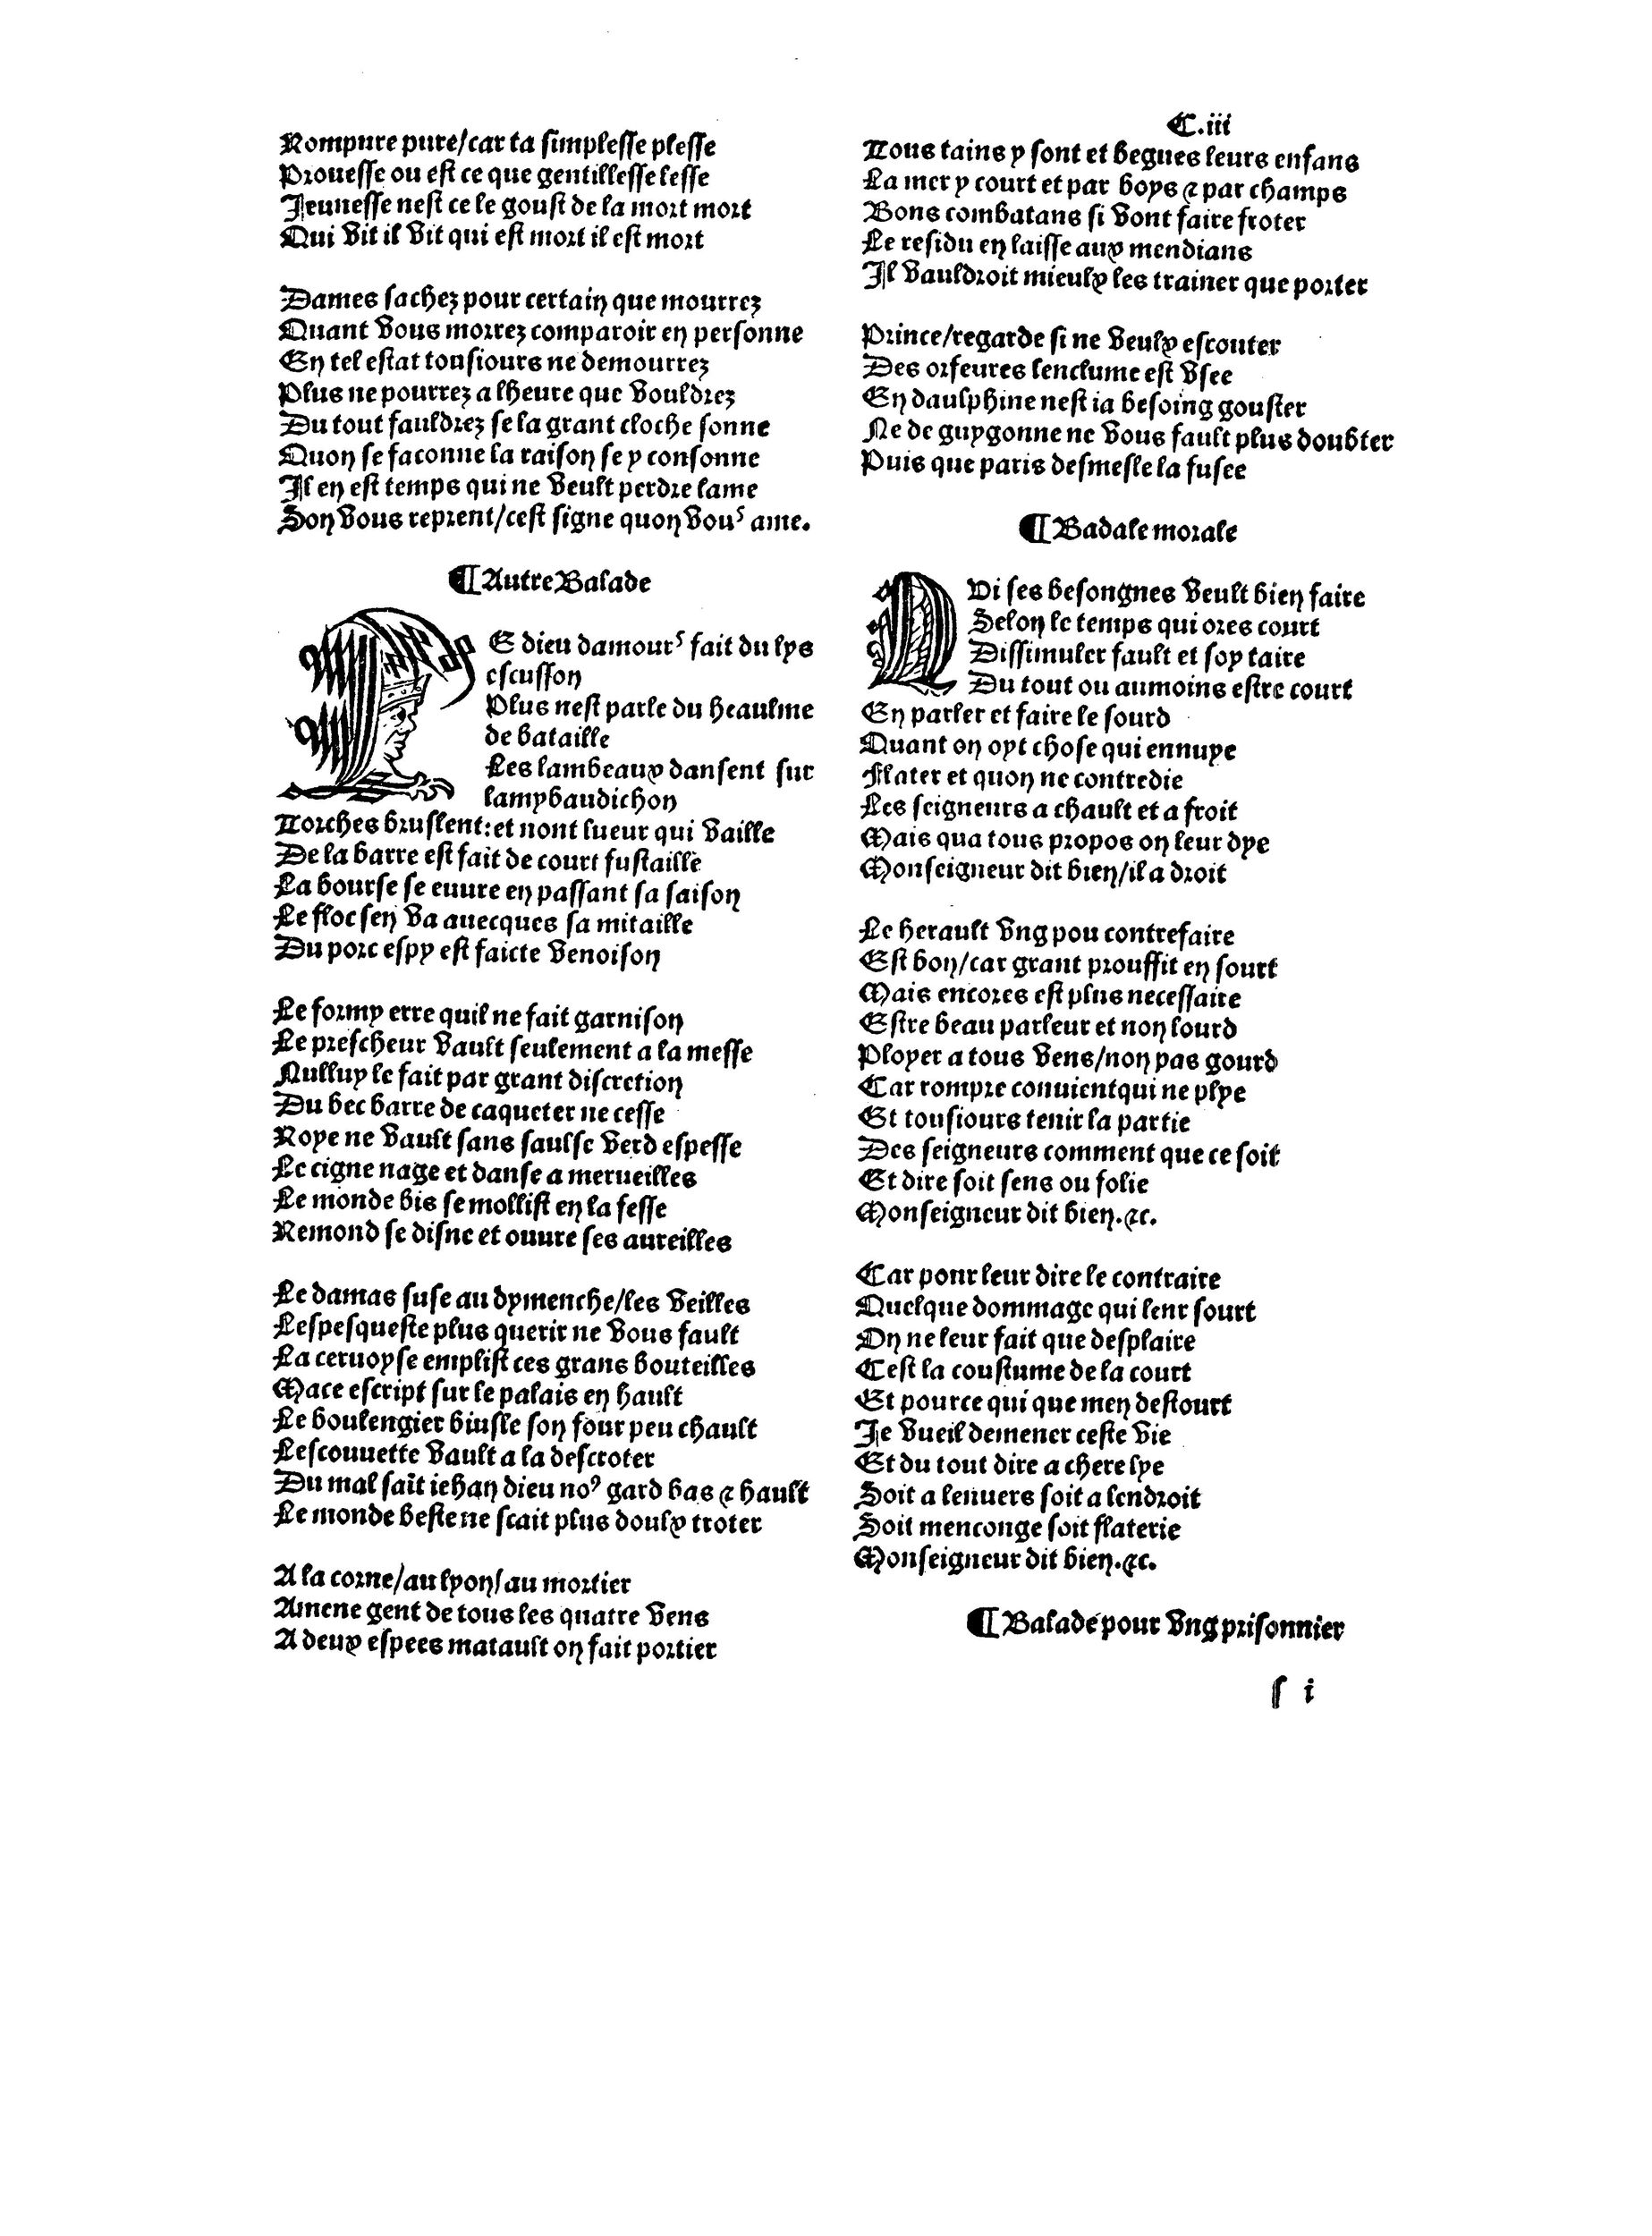 Rompure pure/car ta simplesse plesse
Prouesse ou est ce que gentillesse lesse
Jeunesse nest ce le goust de la mort mort
Qui vit il vit qui est mort il est mort
Dames sachez pour certain que mourrez
Quant vous morrez comparoir en personne
En tel estat tousiours ne demourrez
Plus ne pourrez a lheure que vouldrez
Du tout fauldrez se la grant cloche sonne
Quon se faconne la raison se y consonne
Il en est temps qui ne veult perdre lame
Son vous reprent/cest signe quon vous ame.
¶ Autre Balade
LE dieu damours fait du lys
escusson
Plus nest parle du heaulme
de bataille
Les lambeaux dansent sur
lamybaudichon
Torches bruslent: et nont lueur qui vaille
De la barre est fait de court fustaille
La bourse se euure en passant sa saison
Le floc sen va auecques sa mitaille
Du porc espy est faicte venoison
Le formy erre quil ne fait garnison
Le prescheur vault seulement a la messe
Nulluy le fait par grant discretion
Du bec barre de caqueter ne cesse
Roye ne vault sans saulse verd espesse
Le cigne nage et danse a merueilles
Le monde bis se mollist en la fesse
Remond se disne et ouure ses aureilles
Le damas suse au dymenche/les veilles
Lespesqueste plus querir ne vous fault
La ceruoyse emplist ces grans bouteilles
Mace escript sur le palais en hault
Le boulengier biusle son four peu chault
Lescouuette vault a la descroter
Du mal saīt iehan dieu noꝰ gard bas & hault
Le monde beste ne scait plus doulx troter
A la corne/au lyon/au mortier
Amene gent de tous les quatre vens
A deux espees matault on fait portier
C.iii
Tous tains y sont et begues leurs enfans
La mer y court et par boys & par champs
Bons combatans si vont faire froter
Le residu en laisse aux mendians
Il vauldroit mieulx les trainer que porter
Prince/regarde si ne veulx escouter
Des orfeures lenclume est vsee
En daulphine nest ia besoing gouster
Ne de guygonne ne vous fault plus doubter
Puis que paris desmesle la fusee
¶ Badale morale
QVi ses besongnes veult bien faire
Selon le temps qui ores court
Dissimuler fault et soy taire
Du tout ou aumoins estre court
En parler et faire le sourd
Quant on oyt chose qui ennuye
Flater et quon ne contredie
Les seigneurs a chault et a froit
Mais qua tous propos on leur dye
Monseigneur dit bien/il a droit
Le herault vng pou contrefaire
Est bon/car grant prouffit en sourt
Mais encores est plus necessaire
Estre beau parleur et non lourd
Ployer a tous vens/non pas gourd
Car rompre conuientqui ne plye
Et tousiours tenir la partie
Des seigneurs comment que ce soit
Et dire soit sens ou folie
Monseigneur dit bien.&c.
Car ponr leur dire le contraire
Quelque dommage qui lenr sourt
On ne leur fait que desplaire
Cest la coustume de la court
Et pource qui que men destourt
Je vueil demener ceste vie
Et du tout dire a chere lye
Soit a lenuers soit a lendroit
Soit menconge soit flaterie
Monseigneur dit bien.&c.
¶ Balade pour vng prisonnier
s i